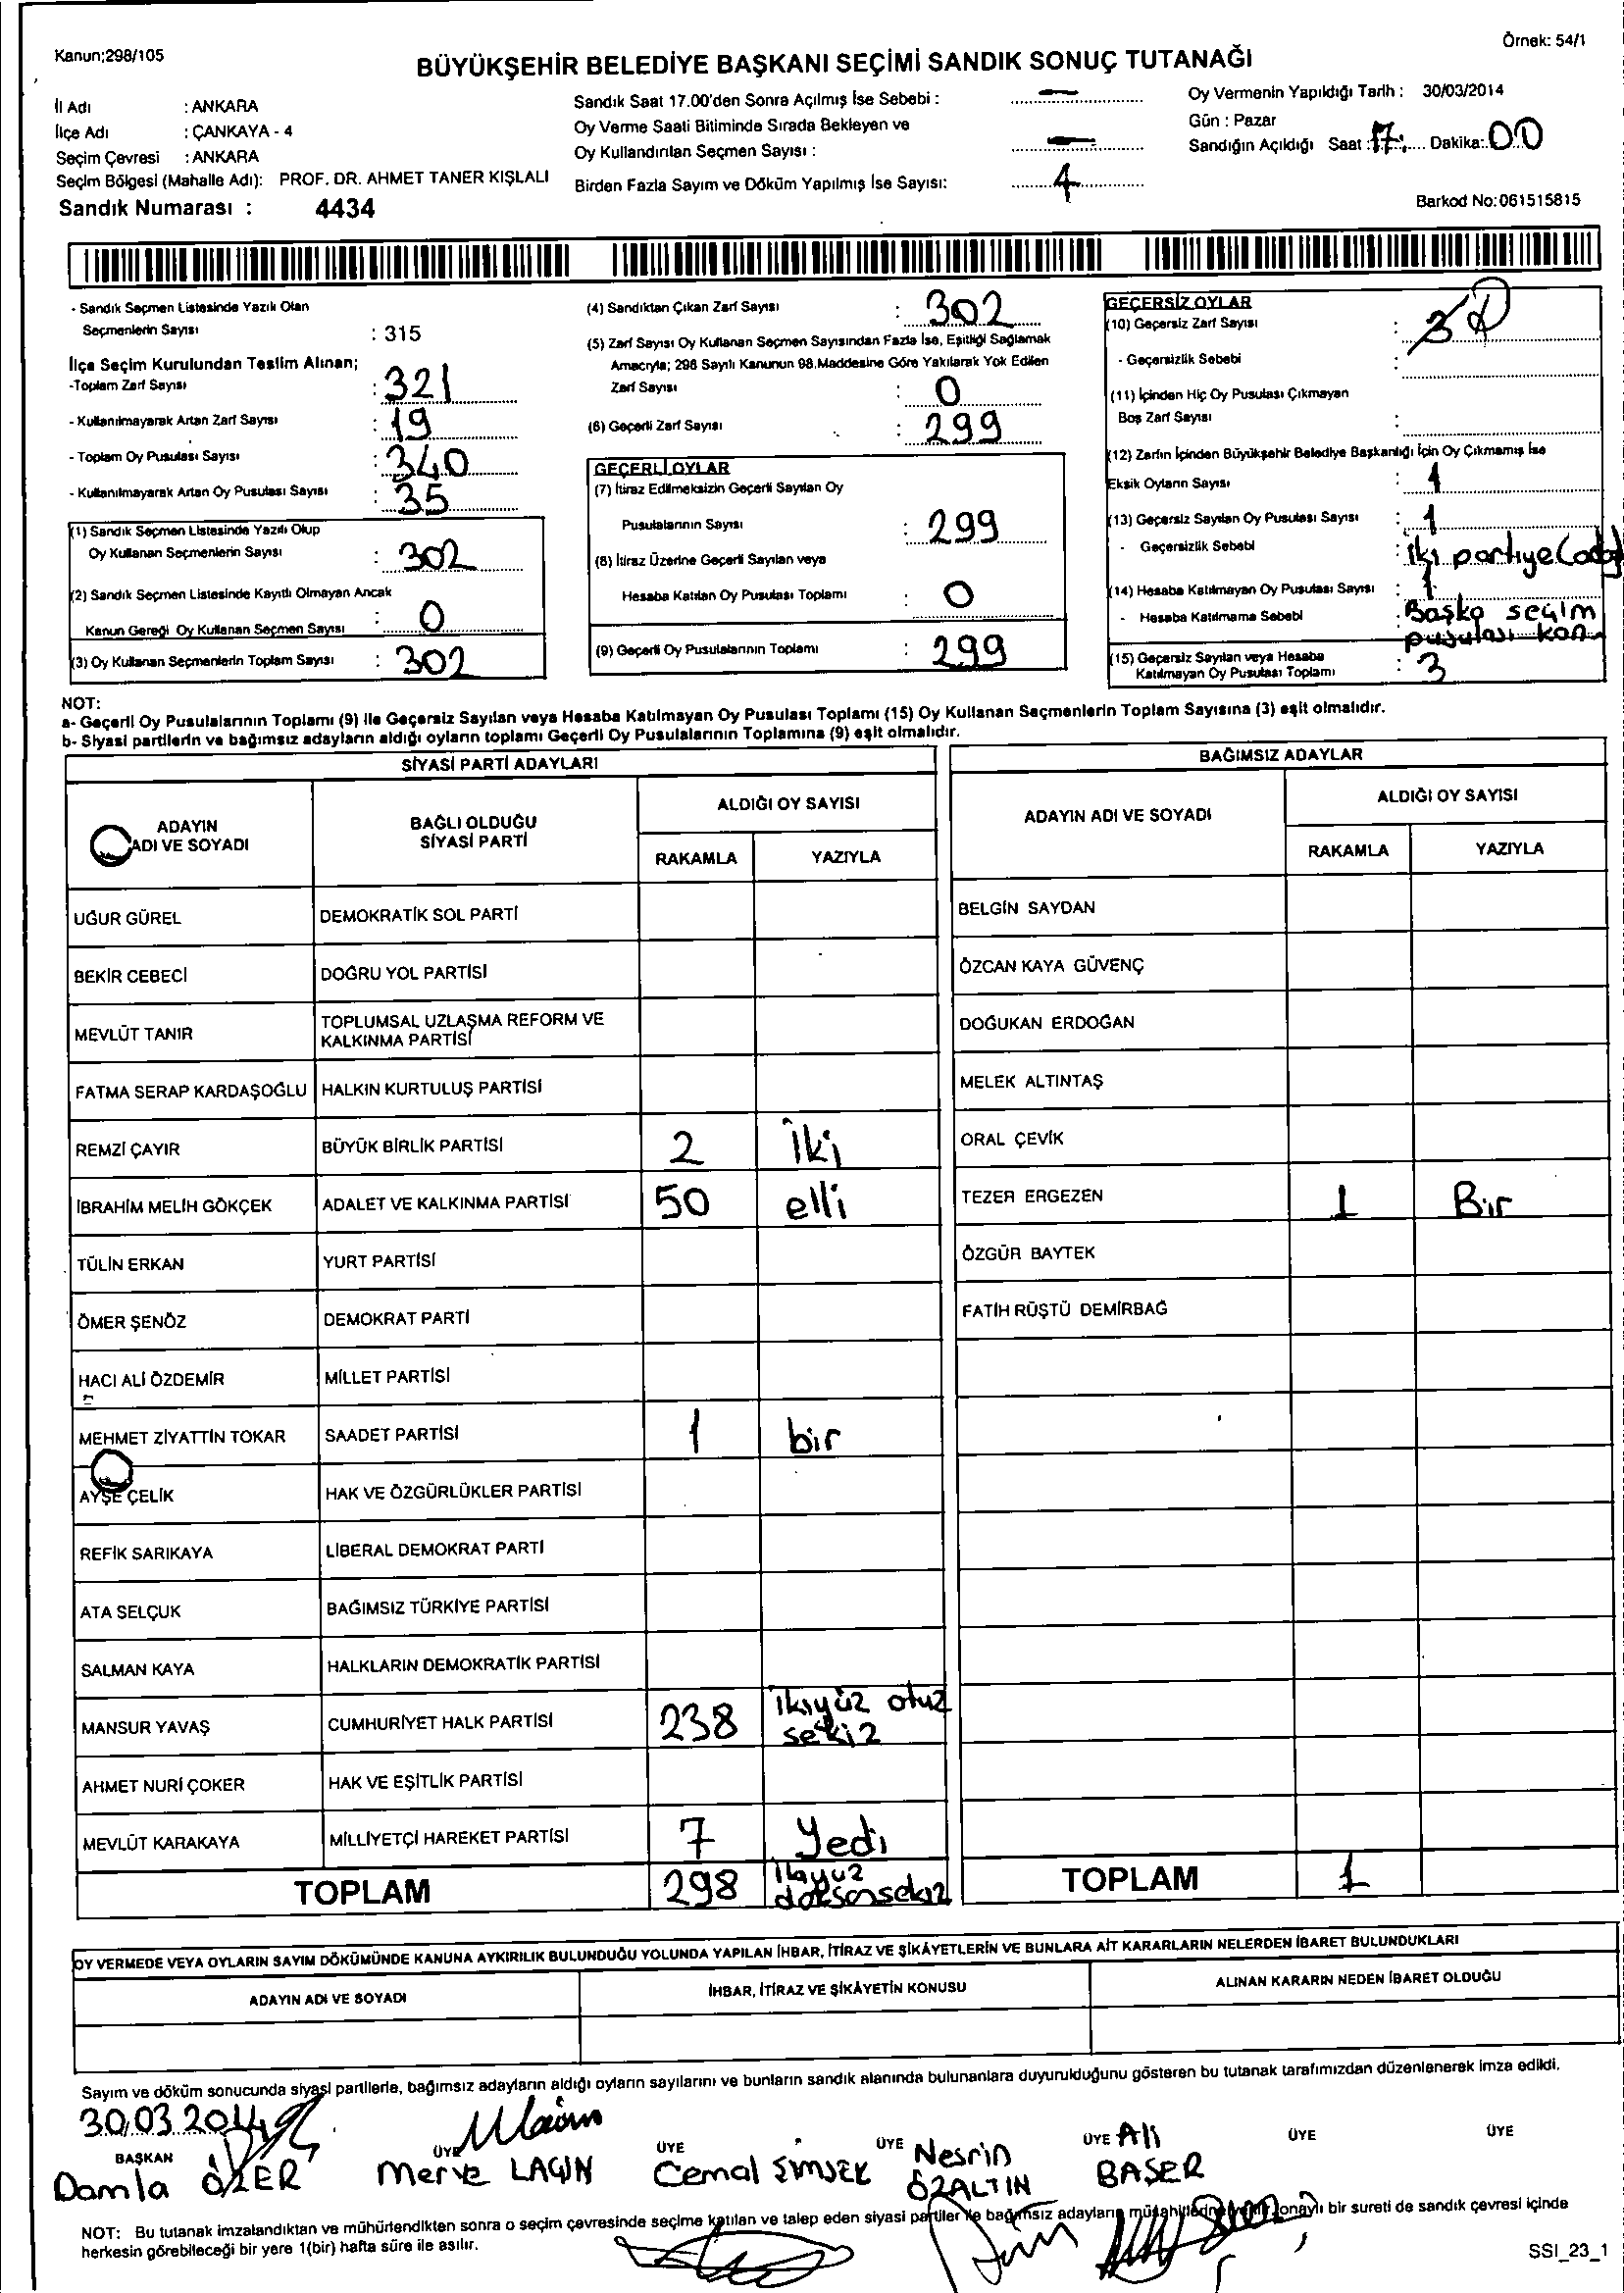 Kanun;298/105
Örnek: 54/1
BÜYÜKŞEHİR BELEDİYE BAŞKANI SEÇİMİ SANDIK SONUÇ TUTANAĞI
İl Adı : ANKARA
İlçe Adı : ÇANKAYA - 4
Seçim Çevresi : ANKARA
Seçim Bölgesi (Mahalle Adı): PROF. DR. AHMET TANER KIŞLALI
Sandık Numarası : 4434
Sandık Saat 17.00'den Sonra Açılmış İse Sebebi : —
Oy Verme Saati Bitiminde Sırada Bekleyen ve
Oy Kullandırılan Seçmen Sayısı : —
Birden Fazla Sayım ve Döküm Yapılmış İse Sayısı: 4
Oy Vermenin Yapıldığı Tarih : 30/03/2014
Gün : Pazar
Sandığın Açıldığı Saat : 17: Dakika: 00
Barkod No:061515815
- Sandık Seçmen Listesinde Yazılı Olan
Seçmenlerin Sayısı : 315
İlçe Seçim Kurulundan Teslim Alınan;
-Toplam Zarf Sayısı : 321
- Kullanılmayarak Artan Zarf Sayısı : 19
- Toplam Oy Pusulası Sayısı : 340
- Kullanılmayarak Artan Oy Pusulası Sayısı : 35
(1) Sandık Seçmen Listesinde Yazılı Olup
Oy Kullanan Seçmenlerin Sayısı : 302
(2) Sandık Seçmen Listesinde Kayıtlı Olmayan Ancak
Kanun Gereği Oy Kullanan Seçmen Sayısı : 0
(3) Oy Kullanan Seçmenlerin Toplam Sayısı : 302
(4) Sandıktan Çıkan Zarf Sayısı : 302
(5) Zarf Sayısı Oy Kullanan Seçmen Sayısından Fazla İse, Eşitliği Sağlamak
Amacıyla; 298 Sayılı Kanunun 98.Maddesine Göre Yakılarak Yok Edilen
Zarf Sayısı : 0
(6) Geçerli Zarf Sayısı : 299
GEÇERLİ OYLAR
(7) İtiraz Edilmeksizin Geçerli Sayılan Oy
Pusulalarının Sayısı : 299
(8) İtiraz Üzerine Geçerli Sayılan veya
Hesaba Katılan Oy Pusulası Toplamı : 0
(9) Geçerli Oy Pusulalarının Toplamı : 299
GEÇERSİZ OYLAR
(10) Geçersiz Zarf Sayısı : 3
- Geçersizlik Sebebi :
(11) İçinden Hiç Oy Pusulası Çıkmayan
Boş Zarf Sayısı :
(12) Zarfın İçinden Büyükşehir Belediye Başkanlığı İçin Oy Çıkmamış İse
Eksik Oyların Sayısı : 1
(13) Geçersiz Sayılan Oy Pusulası Sayısı : 1
- Geçersizlik Sebebi : iki partiye
(14) Hesaba Katılmayan Oy Pusulası Sayısı : 1
- Hesaba Katılmama Sebebi : Başka seçim
pusulası kon
(15) Geçersiz Sayılan veya Hesaba
Katılmayan Oy Pusulası Toplamı : 3
NOT:
a- Geçerli Oy Pusulalarının Toplamı (9) ile Geçersiz Sayılan veya Hesaba Katılmayan Oy Pusulası Toplamı (15) Oy Kullanan Seçmenlerin Toplam Sayısına (3) eşit olmalıdır.
b- Siyasi partilerin ve bağımsız adayların aldığı oyların toplamı Geçerli Oy Pusulalarının Toplamına (9) eşit olmalıdır.
SİYASİ PARTİ ADAYLARI
ADAYIN ADI VE SOYADI BAĞLI OLDUĞU SİYASİ PARTİ ALDIĞI OY SAYISI
RAKAMLA YAZIYLA
UĞUR GÜREL DEMOKRATİK SOL PARTİ
BEKİR CEBECİ DOĞRU YOL PARTİSİ
MEVLÜT TANIR TOPLUMSAL UZLAŞMA REFORM VE
KALKINMA PARTİSİ
FATMA SERAP KARDAŞOĞLU HALKIN KURTULUŞ PARTİSİ
REMZİ ÇAYIR BÜYÜK BİRLİK PARTİSİ 2 İki
İBRAHİM MELİH GÖKÇEK ADALET VE KALKINMA PARTİSİ 50 elli
TÜLİN ERKAN YURT PARTİSİ
ÖMER ŞENÖZ DEMOKRAT PARTİ
HACI ALİ ÖZDEMİR MİLLET PARTİSİ
MEHMET ZİYATTİN TOKAR SAADET PARTİSİ 1 bir
AYŞE ÇELİK HAK VE ÖZGÜRLÜKLER PARTİSİ
REFİK SARIKAYA LİBERAL DEMOKRAT PARTİ
ATA SELÇUK BAĞIMSIZ TÜRKİYE PARTİSİ
SALMAN KAYA HALKLARIN DEMOKRATİK PARTİSİ
MANSUR YAVAŞ CUMHURİYET HALK PARTİSİ 238 ikiyüz otuz
sekiz
AHMET NURİ ÇOKER HAK VE EŞİTLİK PARTİSİ
MEVLÜT KARAKAYA MİLLİYETÇİ HAREKET PARTİSİ 7 Yedi
TOPLAM 298 ikiyüz
doksansekiz
BAĞIMSIZ ADAYLAR
ADAYIN ADI VE SOYADI ALDIĞI OY SAYISI
RAKAMLA YAZIYLA
BELGİN SAYDAN
ÖZCAN KAYA GÜVENÇ
DOĞUKAN ERDOĞAN
MELEK ALTINTAŞ
ORAL ÇEVİK
TEZER ERGEZEN 1 Bir
ÖZGÜR BAYTEK
FATİH RÜŞTÜ DEMİRBAĞ
TOPLAM 1
OY VERMEDE VEYA OYLARIN SAYIM DÖKÜMÜNDE KANUNA AYKIRILIK BULUNDUĞU YOLUNDA YAPILAN İHBAR, İTİRAZ VE ŞİKÂYETLERİN VE BUNLARA AİT KARARLARIN NELERDEN İBARET BULUNDUKLARI
ADAYIN ADI VE SOYADI İHBAR, İTİRAZ VE ŞİKÂYETİN KONUSU ALINAN KARARIN NEDEN İBARET OLDUĞU
Sayım ve döküm sonucunda siyasi partilerle, bağımsız adayların aldığı oyların sayılarını ve bunların sandık alanında bulunanlara duyurulduğunu gösteren bu tutanak tarafımızdan düzenlenerek imza edildi.
30.03.2014
BAŞKAN ÜYE ÜYE ÜYE ÜYE ÜYE ÜYE
Damla ÖZER Merve LAÇIN Cemal ŞİMŞEK Nesrin ÖZALTIN Ali BAŞER
NOT: Bu tutanak imzalandıktan ve mühürlendikten sonra o seçim çevresinde seçime katılan ve talep eden siyasi partiler ile bağımsız adayların onaylı bir sureti de sandık çevresi içinde
herkesin görebileceği bir yere 1(bir) hafta süre ile asılır.
SSI_23_1